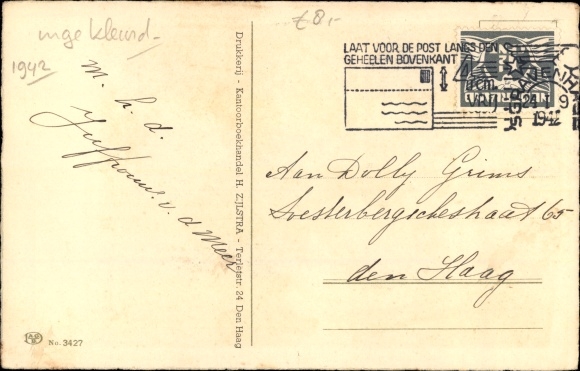 ingekleurd -
1942
£ 8,-
m. h. d.
Juffrouw v. d Meer
Drukkerij - Kantoorboekhandel H. ZIJLSTRA - Terletstr. 24 Den Haag
LAAT VOOR DE POST LANGS DEN
GEHEELEN BOVENKANT
1942
Aan Dolly Grims
Soesterbergschestraat 65
den Haag
No. 3427